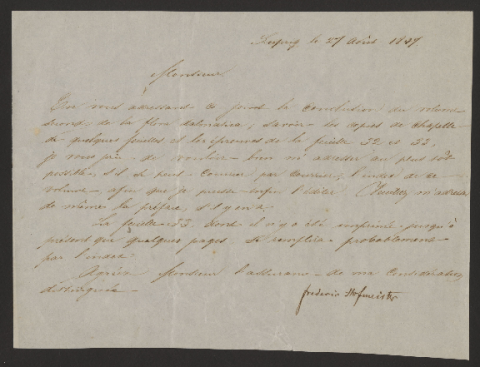 Leipzig le 27 Août 1847
Monsieur
En vous adressant ci joint la conclusion du volume
second de la flora dalmatica, savoir les copies de
de quelques feuilles et les épreuves de la feuille 32 et 33,
je vous prie de vouloir bien m'adresser au plus tôt
possible, s'il se peut par courrier, l'index de ce
volume, afin que je puisse enfin l'éditer. Veuillez m'adresser
de même la préface, s'il y en a.
La feuille 33 dont il n'y a été imprimé jusqu'à
présent que quelques pages se remplira probablement
par l'index.
Agréez Monsieur l'assurance de ma considération
distinguée
frederic Hofmeister